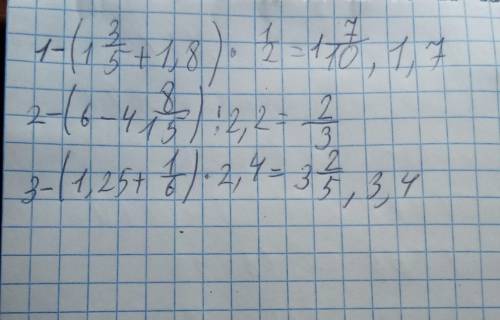 1-(1 3/5 + 1,8) · 1/2 = 1 7/10, 1,7
2-(6 - 4 8/15) : 2,2 = 2/3
3-(1,25 + 1/6) · 2,4 = 3 2/5, 3,4